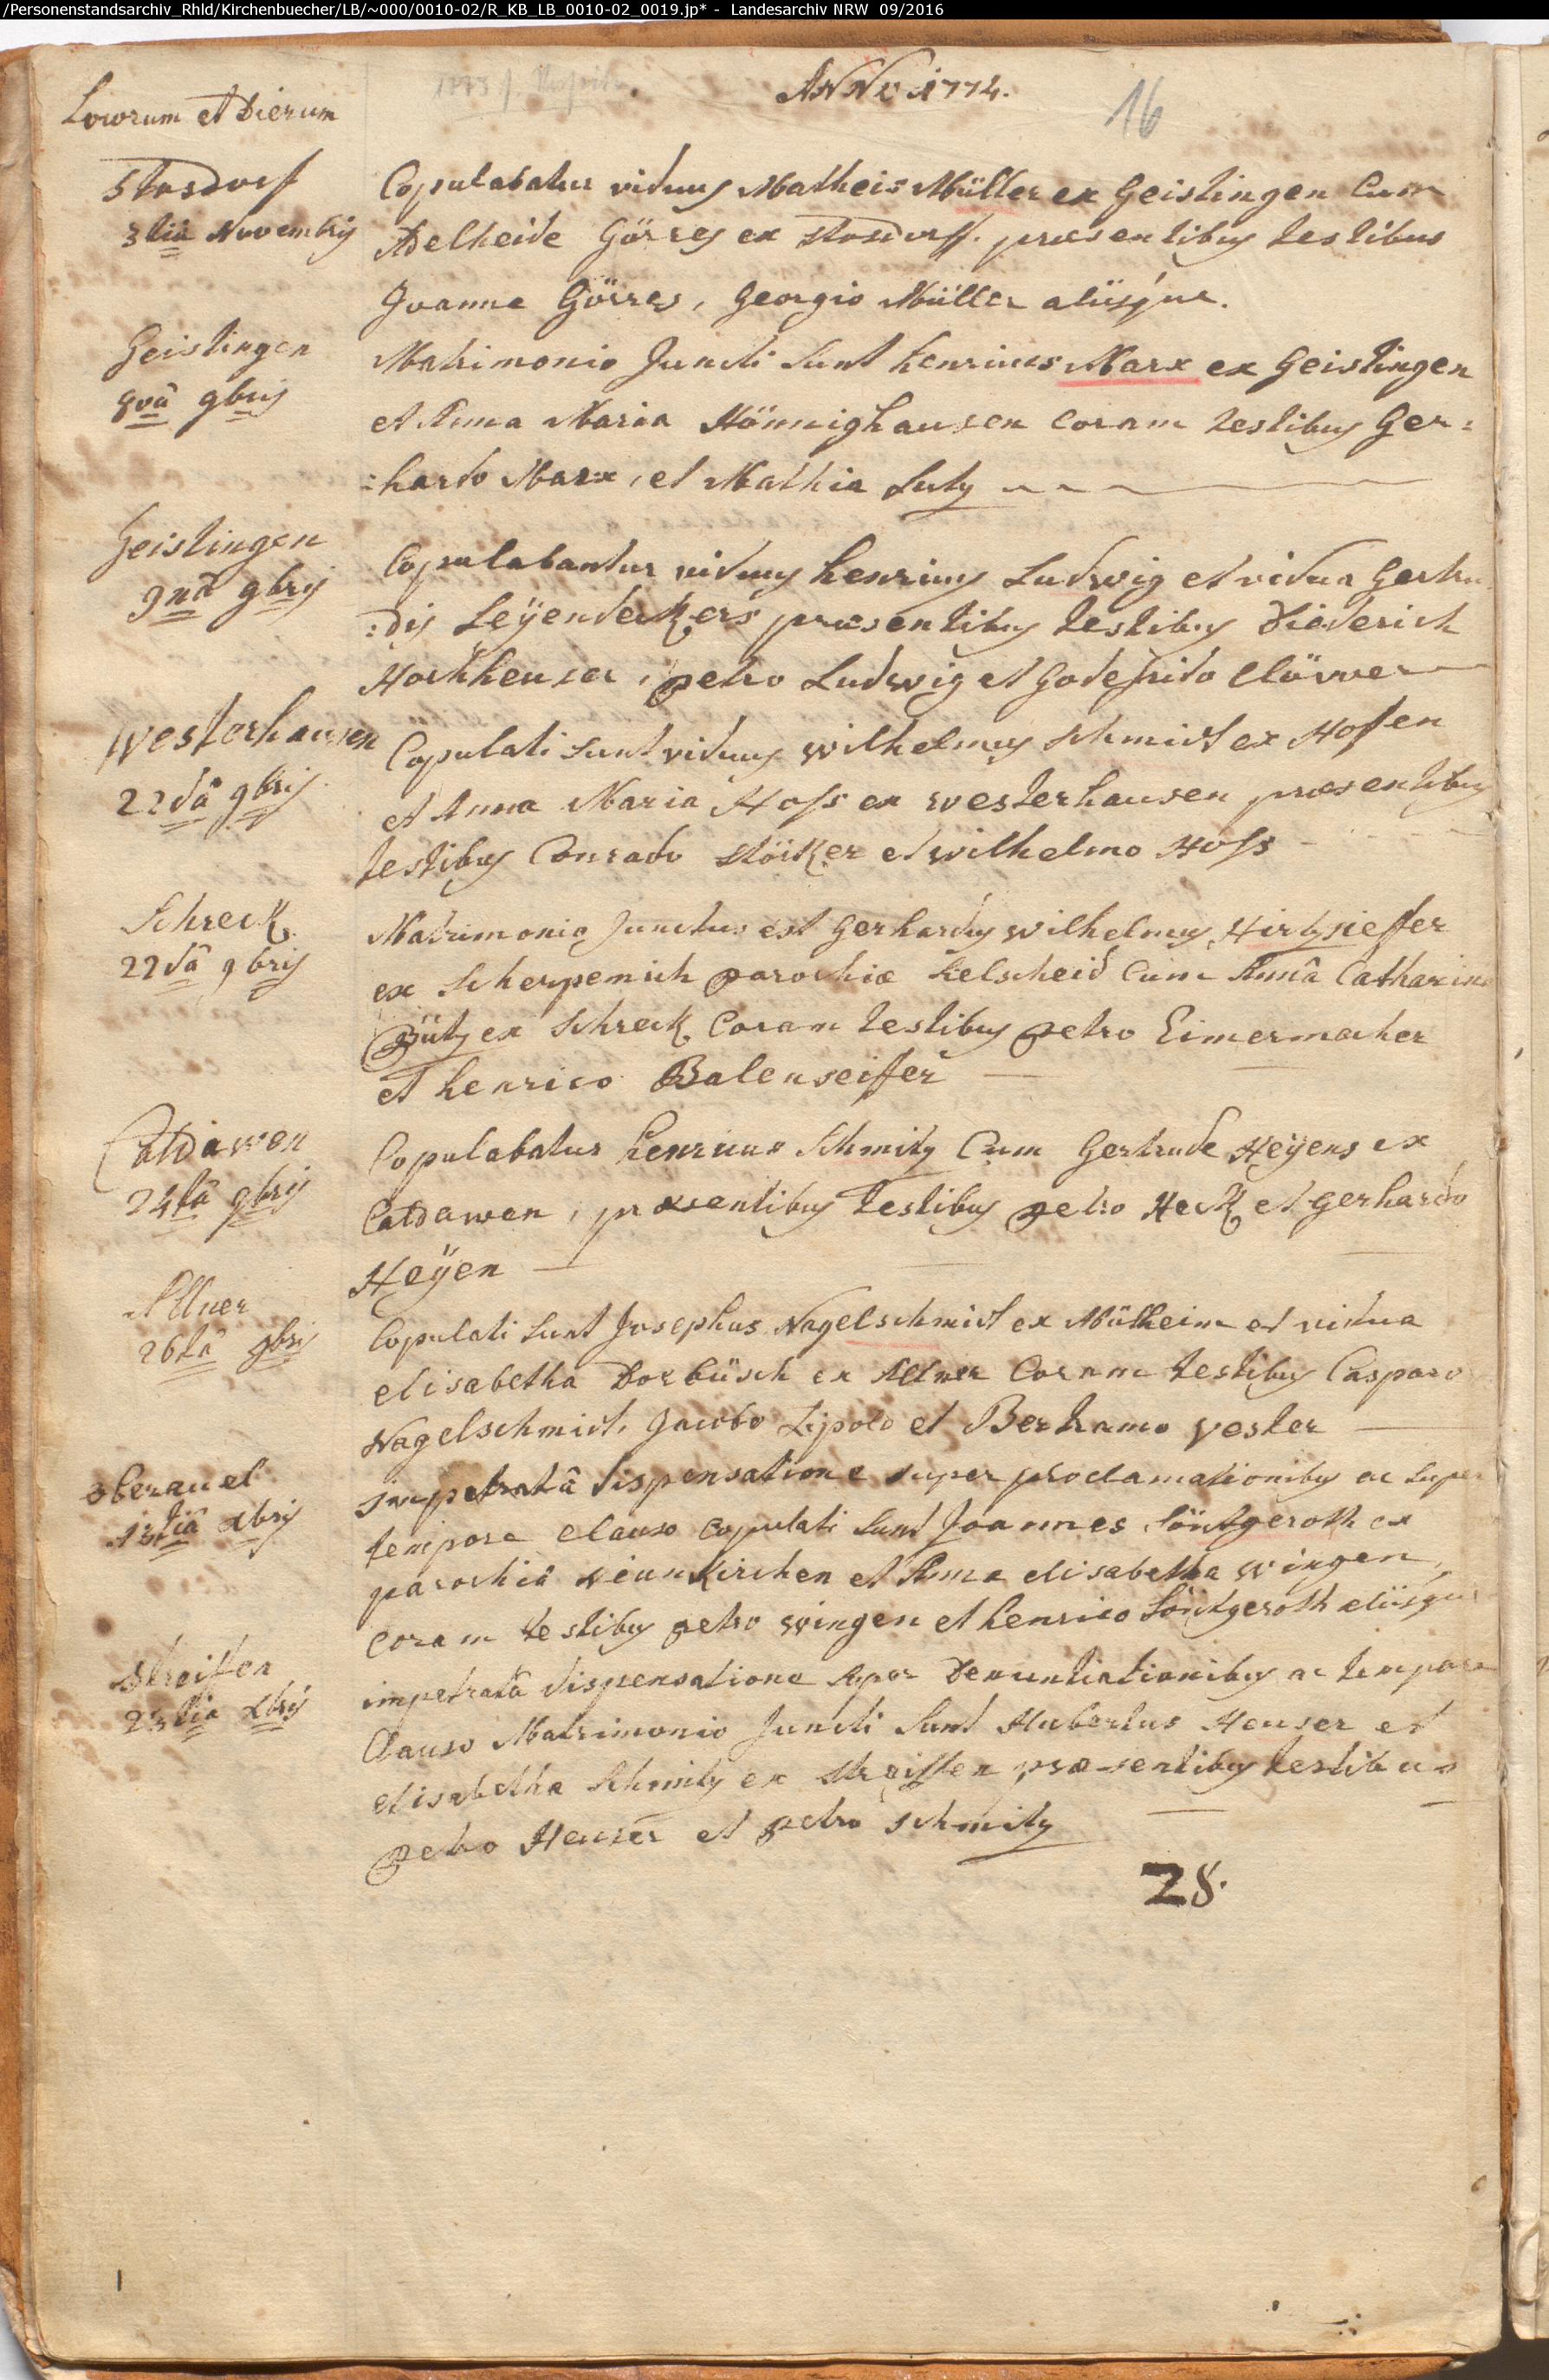 /Personenstandsarchiv_Rhld/Kirchenbuecher/LB/~000/0010-02/R_KB_LB_0010-02_0019.jp* - Landesarchiv NRW 09/2016
ANNO 1774.
16
Locorum et Dierum
Stosdorf
3tiâ Novembris
Copulabatur viduus Matheis Müller ex Geistingen Cum
Adelheide Görres ex Stosdorff. præsentibus testibus
Joanne Görres, Georgio Müller aliisque.
Geistingen
8vâ 9bris
Matrimonio Juncti Sunt henricus Marx ex Geistingen
et Anna Maria Hönnighausen Coram testibus Ger=
=hardo Marx, et Mathia Lutz
Geistingen
9nâ 9bris
Copulabantur viduus henricus Ludwig et vidua Gertru
=dis Leÿendeckers præsentibus testibus Diederich
Hockheuser, petro Ludwig et Godefrido Clöwer
Westerhausen
22dâ 9bris
Copulati Sunt viduus wilhelmus Schmidt ex Hofen
et Anna Maria Hoss ex westerhausen præsentibus
testibus Conrado Stöcker et wilhelmo Hoss
Schreck
22dâ 9bris
Matrimonio Junctus est Gerhardus wilhelmus Hirtzsieffer
ex Scherpemich parochiæ Selscheid Cum Annâ Catharina
Pütz ex Schreck Coram testibus petro Eimermacher
et henrico Balenseiffer
Catdawen
24tâ 9bris
Copulabatur henricus Schmitz Cum Gertrude Heÿens ex
Catdawen, præsentibus testibus petro Heck et gerhardo
Heÿen
Allner
26tâ 9bris
Copulati Sunt Josephus Nagelschmidt ex Mülheim et vidua
elisabetha Dorbüsch ex Allner Coram testibus Casparo
Nagelschmidt, Jacobo Lipold et Bertramo vester
oberauel
13tiâ xbris
impetratâ dispensatione super proclamationibus ac super
tempore Clauso Copulati Sunt Joannes Söntgeroth ex
parochiâ Neunkirchen et Anna elisabetha wingen,
Coram testibus petro wingen et henrico Söntgeroth aliisque
Streifen
23tia xbris
impetratâ dispensatione super Denuntiationibus ac tempore
Clauso Matrimonio Juncti Sunt Hubertus Heuser et
elisabetha Schmitz ex Streiffen præsentibus testibus
petro Heuser et petro Schmitz
28.